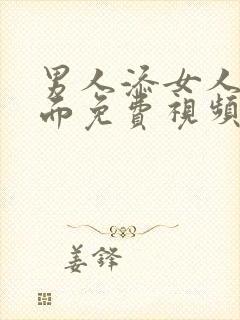 男人添女人
而免費視頻
姜鋒